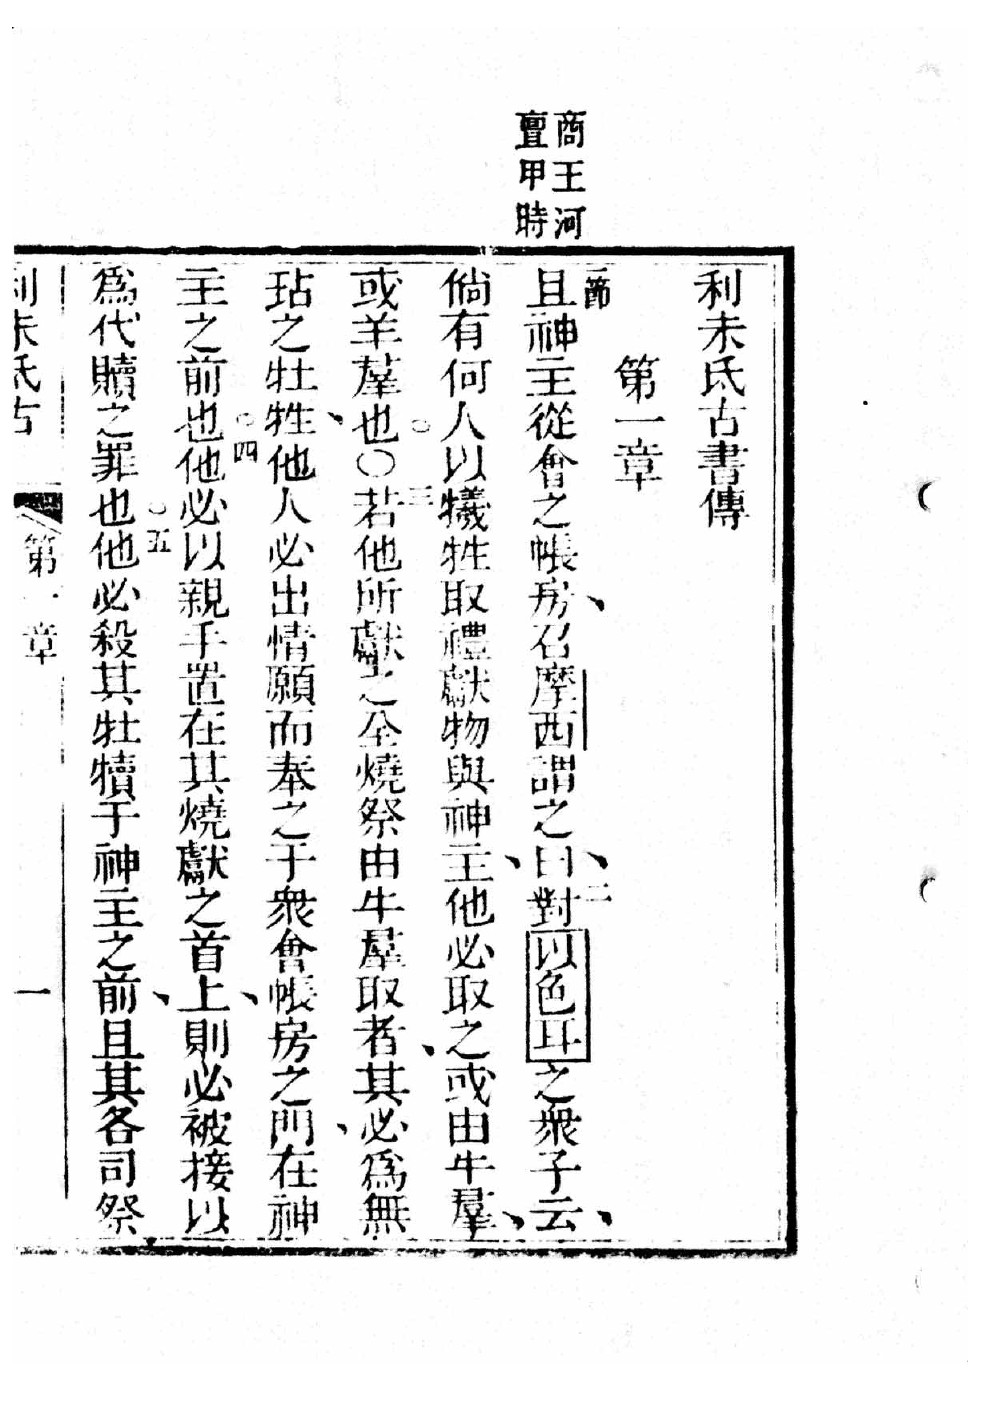 商王河
亶甲時
利未氏古書傳
第一章
一節
且神主從會之帳房、召摩西謂之曰、二對以色耳之衆子云、
倘有何人以犧牲取禮獻物與神主、他必取之或由牛羣、
或羊羣也。〇三若他所獻之全燒祭由牛羣取者、其必爲無
玷之牡牲、他人必出情願而奉之于衆會帳房之門、在神
主之前也。四他必以親手置在其燒獻之首上、則必被接以
爲代贖之罪也。五他必殺其牡犢于神主之前、且其各司祭
利未氏古
第一章
一